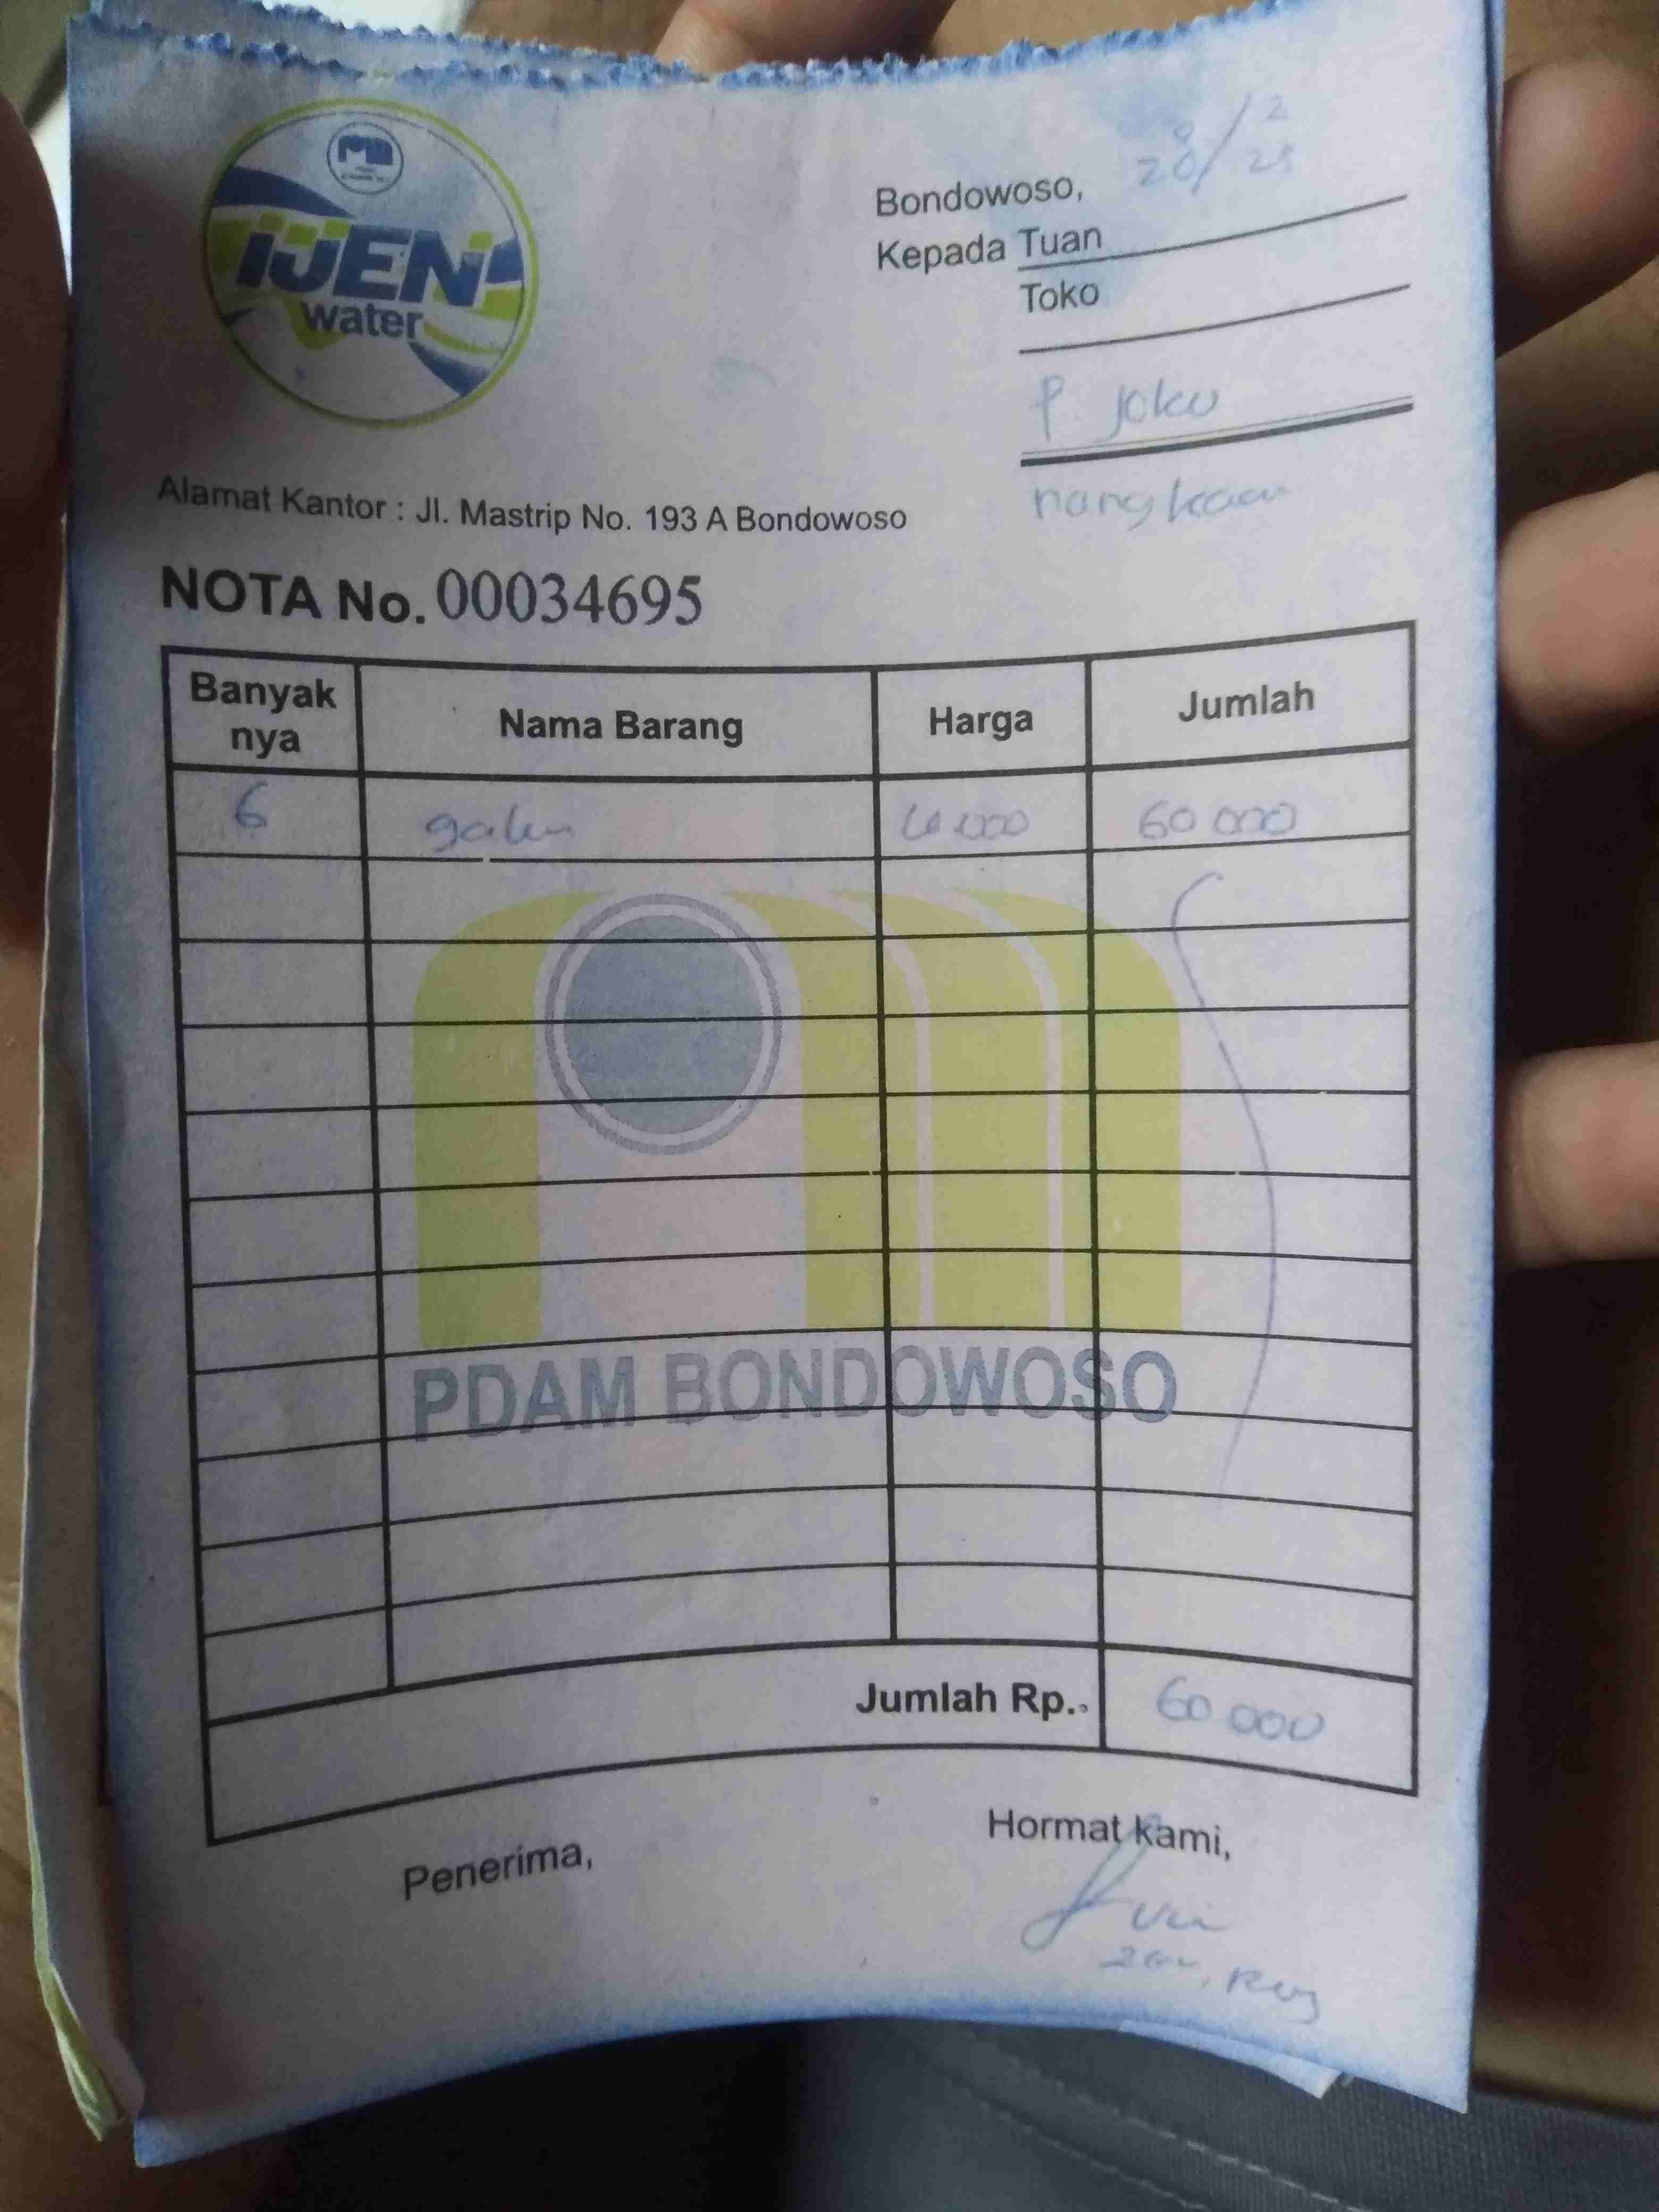 IJEN
water
Bondowoso, 28/2 25
Kepada Tuan
Toko
P Joko
nangkaan
Alamat Kantor : Jl. Mastrip No. 193 A Bondowoso
NOTA No. 00034695
Banyak nya Nama Barang Harga Jumlah
6 galon 10.000 60 000
PDAM BONDOWOSO
Jumlah Rp. 60 000
Penerima, Hormat kami,